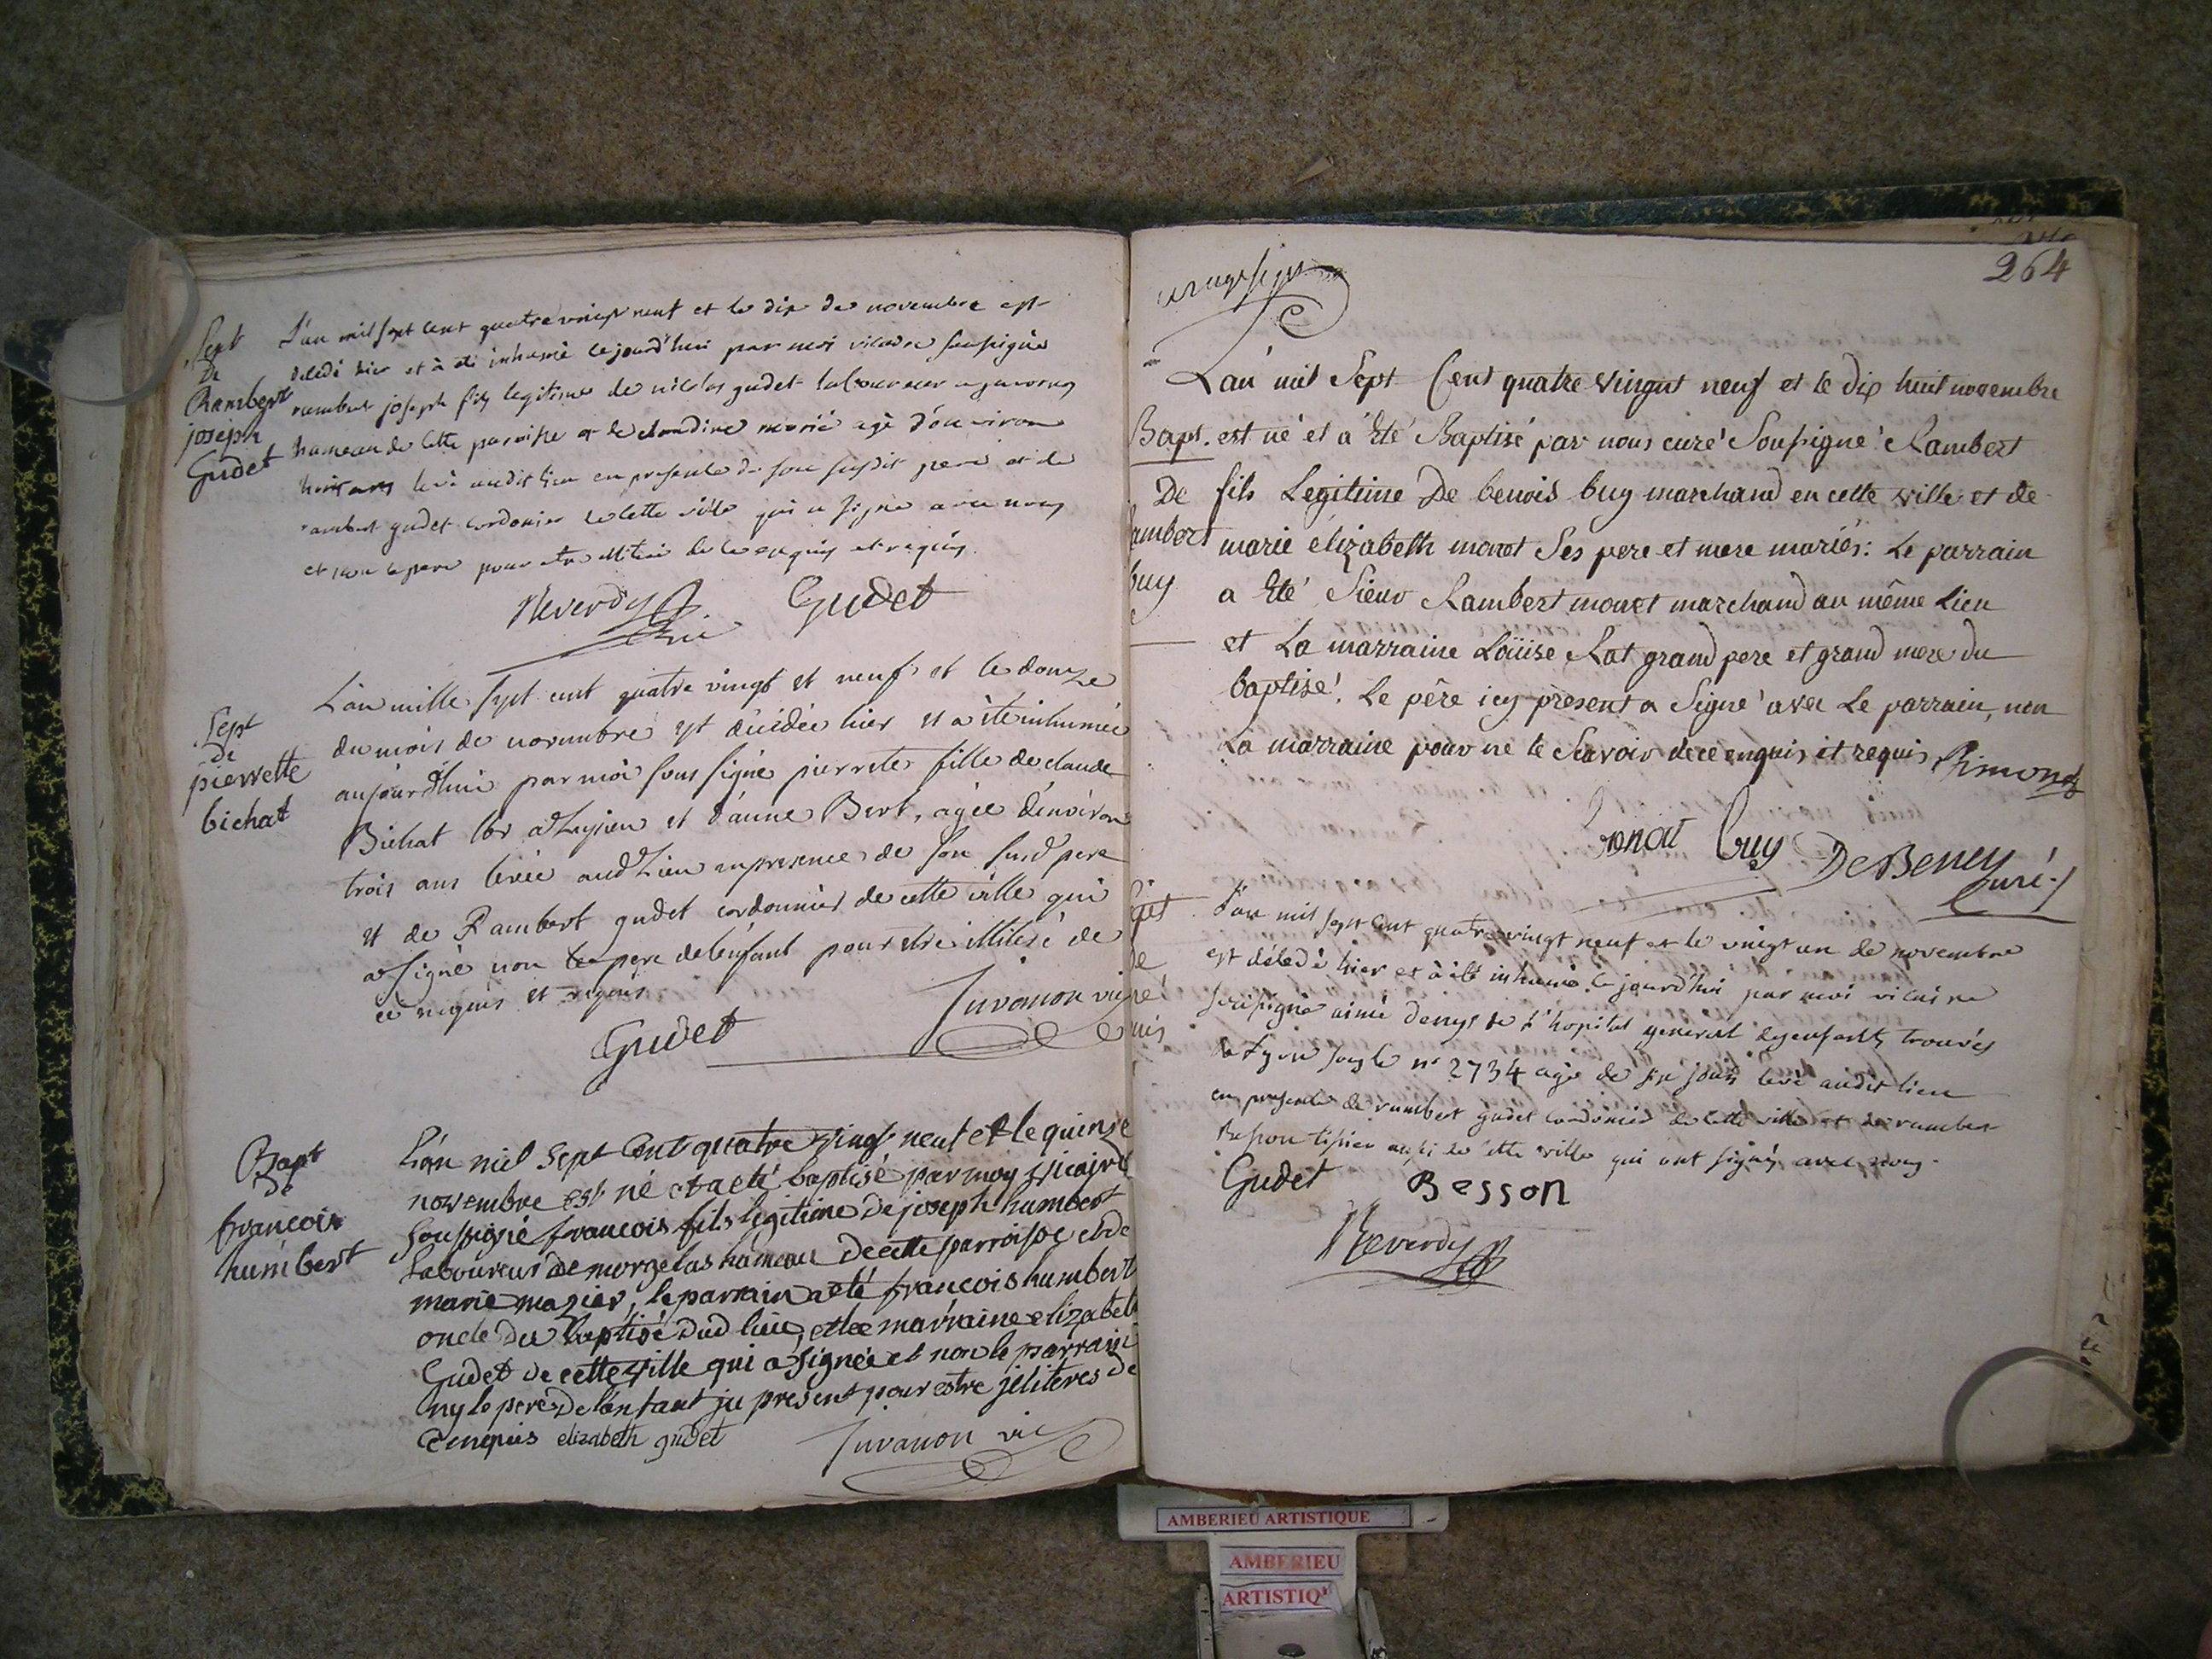 Sept
De
Rambert
joseph
Gudet
L'an mil sept cent quatre vingt neuf et le dix de novembre est
decedé hier et à été inhumé cejourd'hui par moi vicaire soussigné
rambert joseph fils legitime de nicolas gudet laboureur
hameau de cette paroisse et de claudine marié agé d'environ
levé audit lieu en presence de son susdit pere et de
rambert gudet cordonier de cette ville qui a signé avec nous
et non le pere pour etre illiteré de ce enquis et requis
Reverdy vic Gudet
Sept
De
pierrette
bichat
L'an mille sept cent quatre vingt et neuf et le douze
du mois de novembre est décédée hier et a été inhumée
aujourd'hui par moi sous signé pierrete fille de claude
Bichat et d'anne Bert, agée d'environ
trois ans levée aud lieu en presence de son susd pere
et de Rambert gudet cordonnier de cette ville qui
a signé non le pere de l'enfant pour etre illiteré de
ce enquis et requis
Gudet Juvanon vic
Bapt
De
francois
humbert
L'an mil sept cent quatre vingt neuf et le quinze
novembre est né et a eté baptisé par moy vicaire
soussigné francois fils legitime de joseph humbert
Laboureur de morgelas hameau de cette parroisse et de
marie mazier, le parrain a eté francois humbert
oncle du baptisé dud lieu, et la marraine elizabeth
Gudet de cette ville qui a signée et non le parrain
ny le pere de l'enfant ju present pour estre jéliteres de
ce enquis elizabeth gudet Juvanon vic
264
Bapt.
De
Rambert
buy
L'an mil Sept Cent quatre vingnt neuf et le dix huit novembre
est né et a Eté Baptisé par nous curé Soussigné Rambert
fils Legitime De benois buy marchand en cette ville et de
marie élizabeth monet Ses pere et mere mariés: Le parrain
a Eté Sieur Rambert monet marchand au même Lieu
et La marraine Loüise Rat grand pere et grand mere du
baptisé. Le père icy present a Signé avec Le parrain, non
La marraine pour ne le Scavoir de ce enquis et requis Rimonet
benoit buy DeBeney
Curé
Sept
de
L'an mil sept cent quatre vingt neuf et le vingt un de novembre
est décedé hier et à été inhumé cejourd'hui par moi vicaire
soussigné aimé denys de l'hopital general des enfants trouvés
de Lyon sous le n° 2734 agé de six jours levé audit lieu
en presence de rambert gudet cordonier de cette ville et de rambert
Besson tissier aussi de cette ville qui ont signés avec nous.
Gudet Besson
Reverdy
AMBERIEU ARTISTIQUE
AMBERIEU
ARTISTIQ